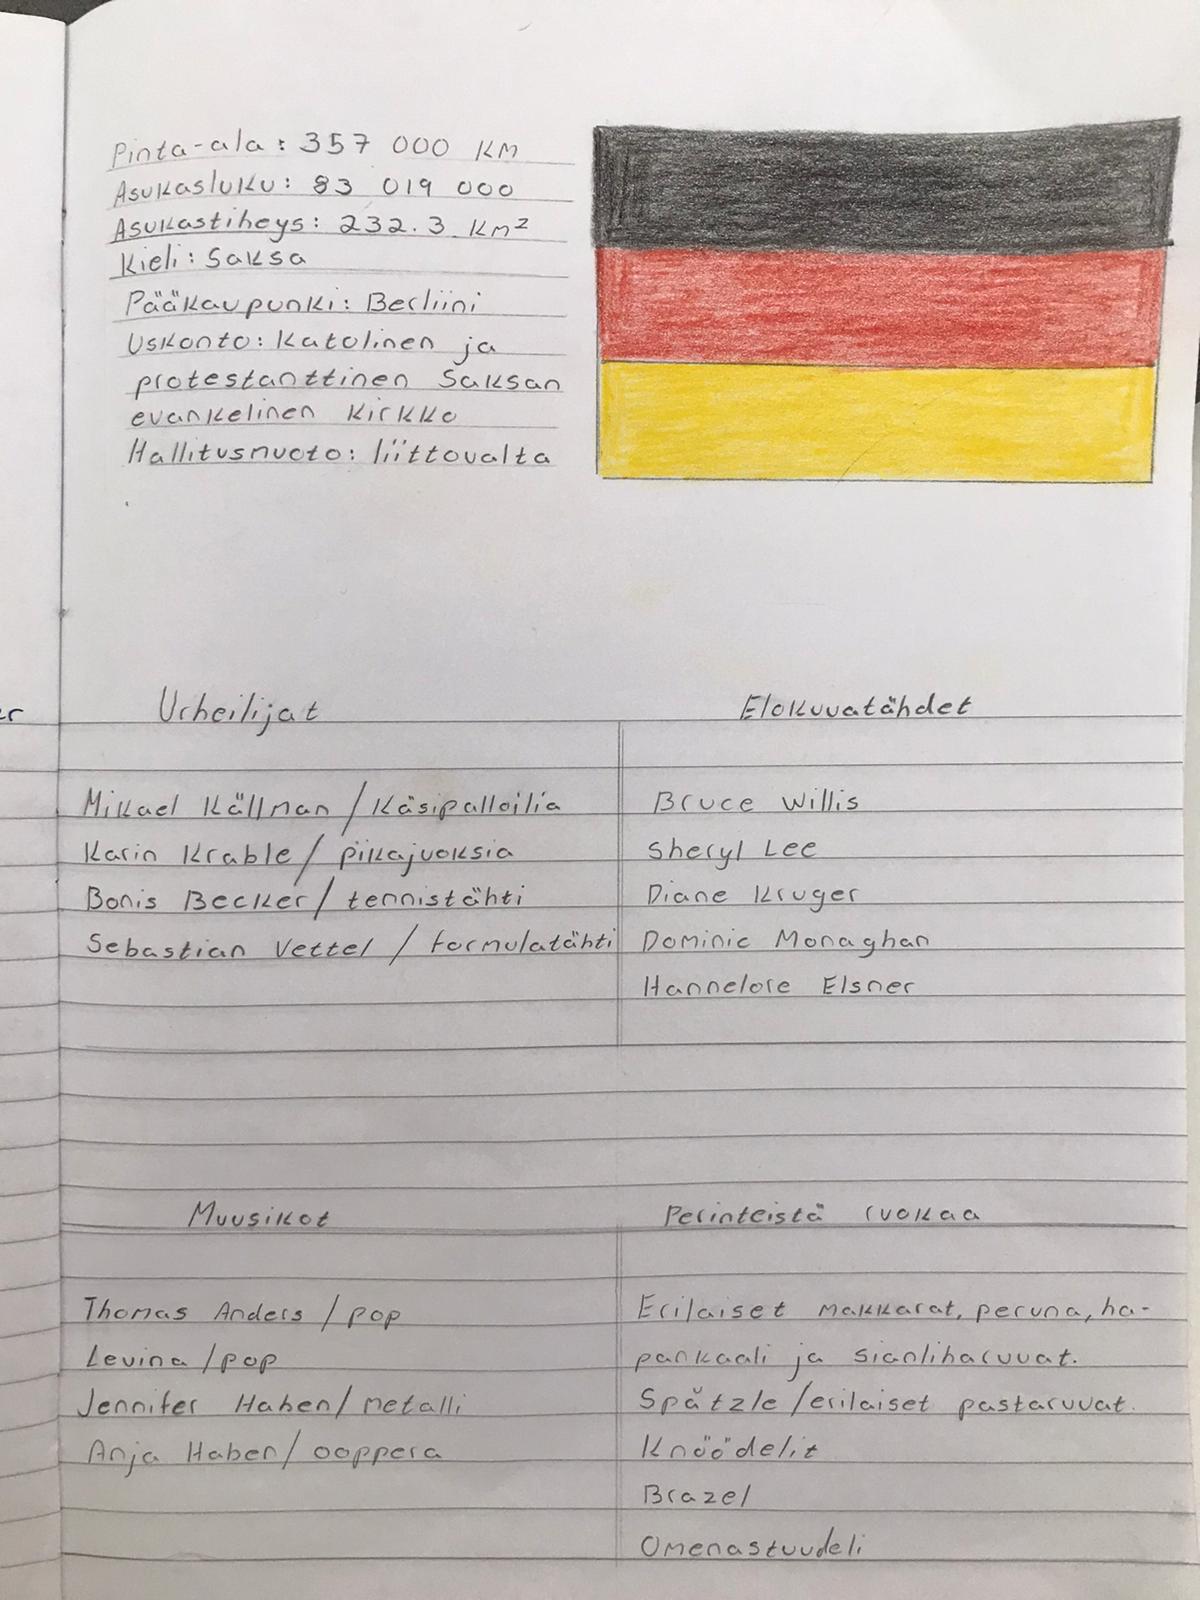 Pinta-ala: 357 000 KM
Asukasluku: 83 019 000
Asukastiheys: 232.3 Km²
Kieli: Saksa
Pääkaupunki: Berliini
Uskonto: Katolinen ja
protestanttinen Saksan
evankelinen Kirkko
Hallitusmuoto: liittovalta
er
Urheilijat
Mikael Källman / Käsipalloilia
Karin Krable / pikajuoksia
Bonis Becker / tennistähti
Sebastian Vettel / formulatähti
Elokuvatähdet
Bruce Willis
Sheryl Lee
Diane Kruger
Dominic Monaghan
Hannelore Elsner
Muusikot
Thomas Anders / pop
Levina / pop
Jennifer Haben / metalli
Anja Haber / ooppera
Perinteistä ruokaa
Erilaiset makkarat, peruna, ha-
pankaali ja sianliharuuat.
Spätzle / erilaiset pastaruuat.
Knöödelit
Brazel
Omenastuudeli